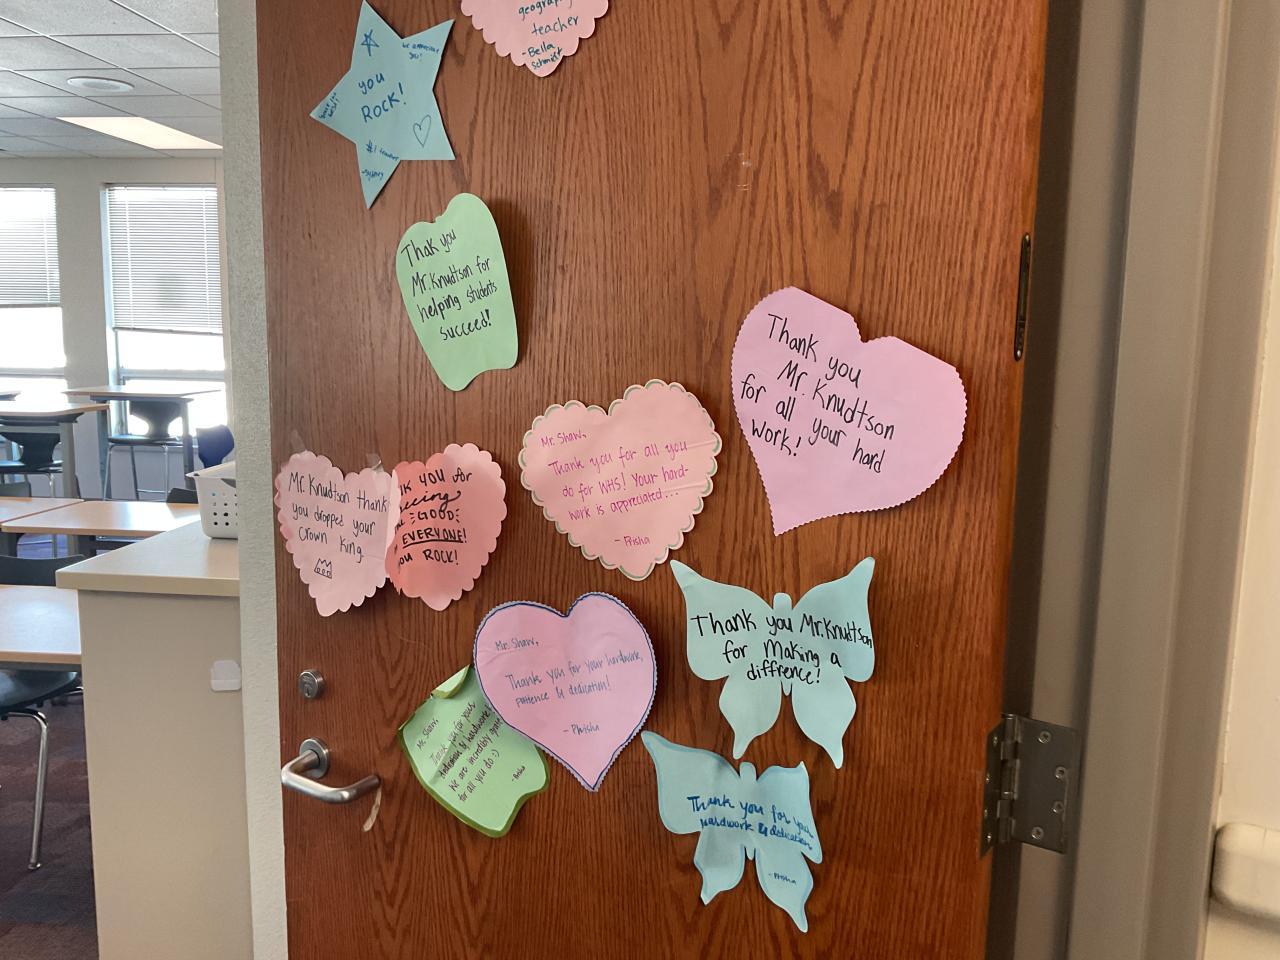 geography
teacher
-Bella
Schmidt
we appreciate
you!
you
ROCK!
#1 teacher
-Sydney
Thak you
Mr. Knudtson for
helping students
succeed!
Thank you
Mr. Knudtson
for all your hard
work!
Mr. Shaw,
Thank you for all you
do for WHS! Your hard-
work is appreciated...
- Prisha
Mr. Knudtson thank
you dropped your
crown king.
YOU for
GOOD
EVERYONE!
ROCK!
Thank you Mr. Knudtson
for making a
diffrence!
Mr. Shaw,
Thank you for your hardwork,
patience & dedication!
- Phrisha
Mr. Shaw,
Thank you for your
dedication & hardwork!
We are incredibly
for all you do :)
- Prisha
Thank you for your
hardwork & dedication
- Prisha